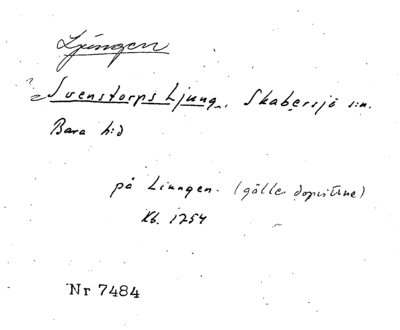 Ljungen
? Svenstorps Ljung, Skabersjö s:n.
Bara hd
på Liungen. (gälle dopvittne)
Kb. 1754
Nr 7484